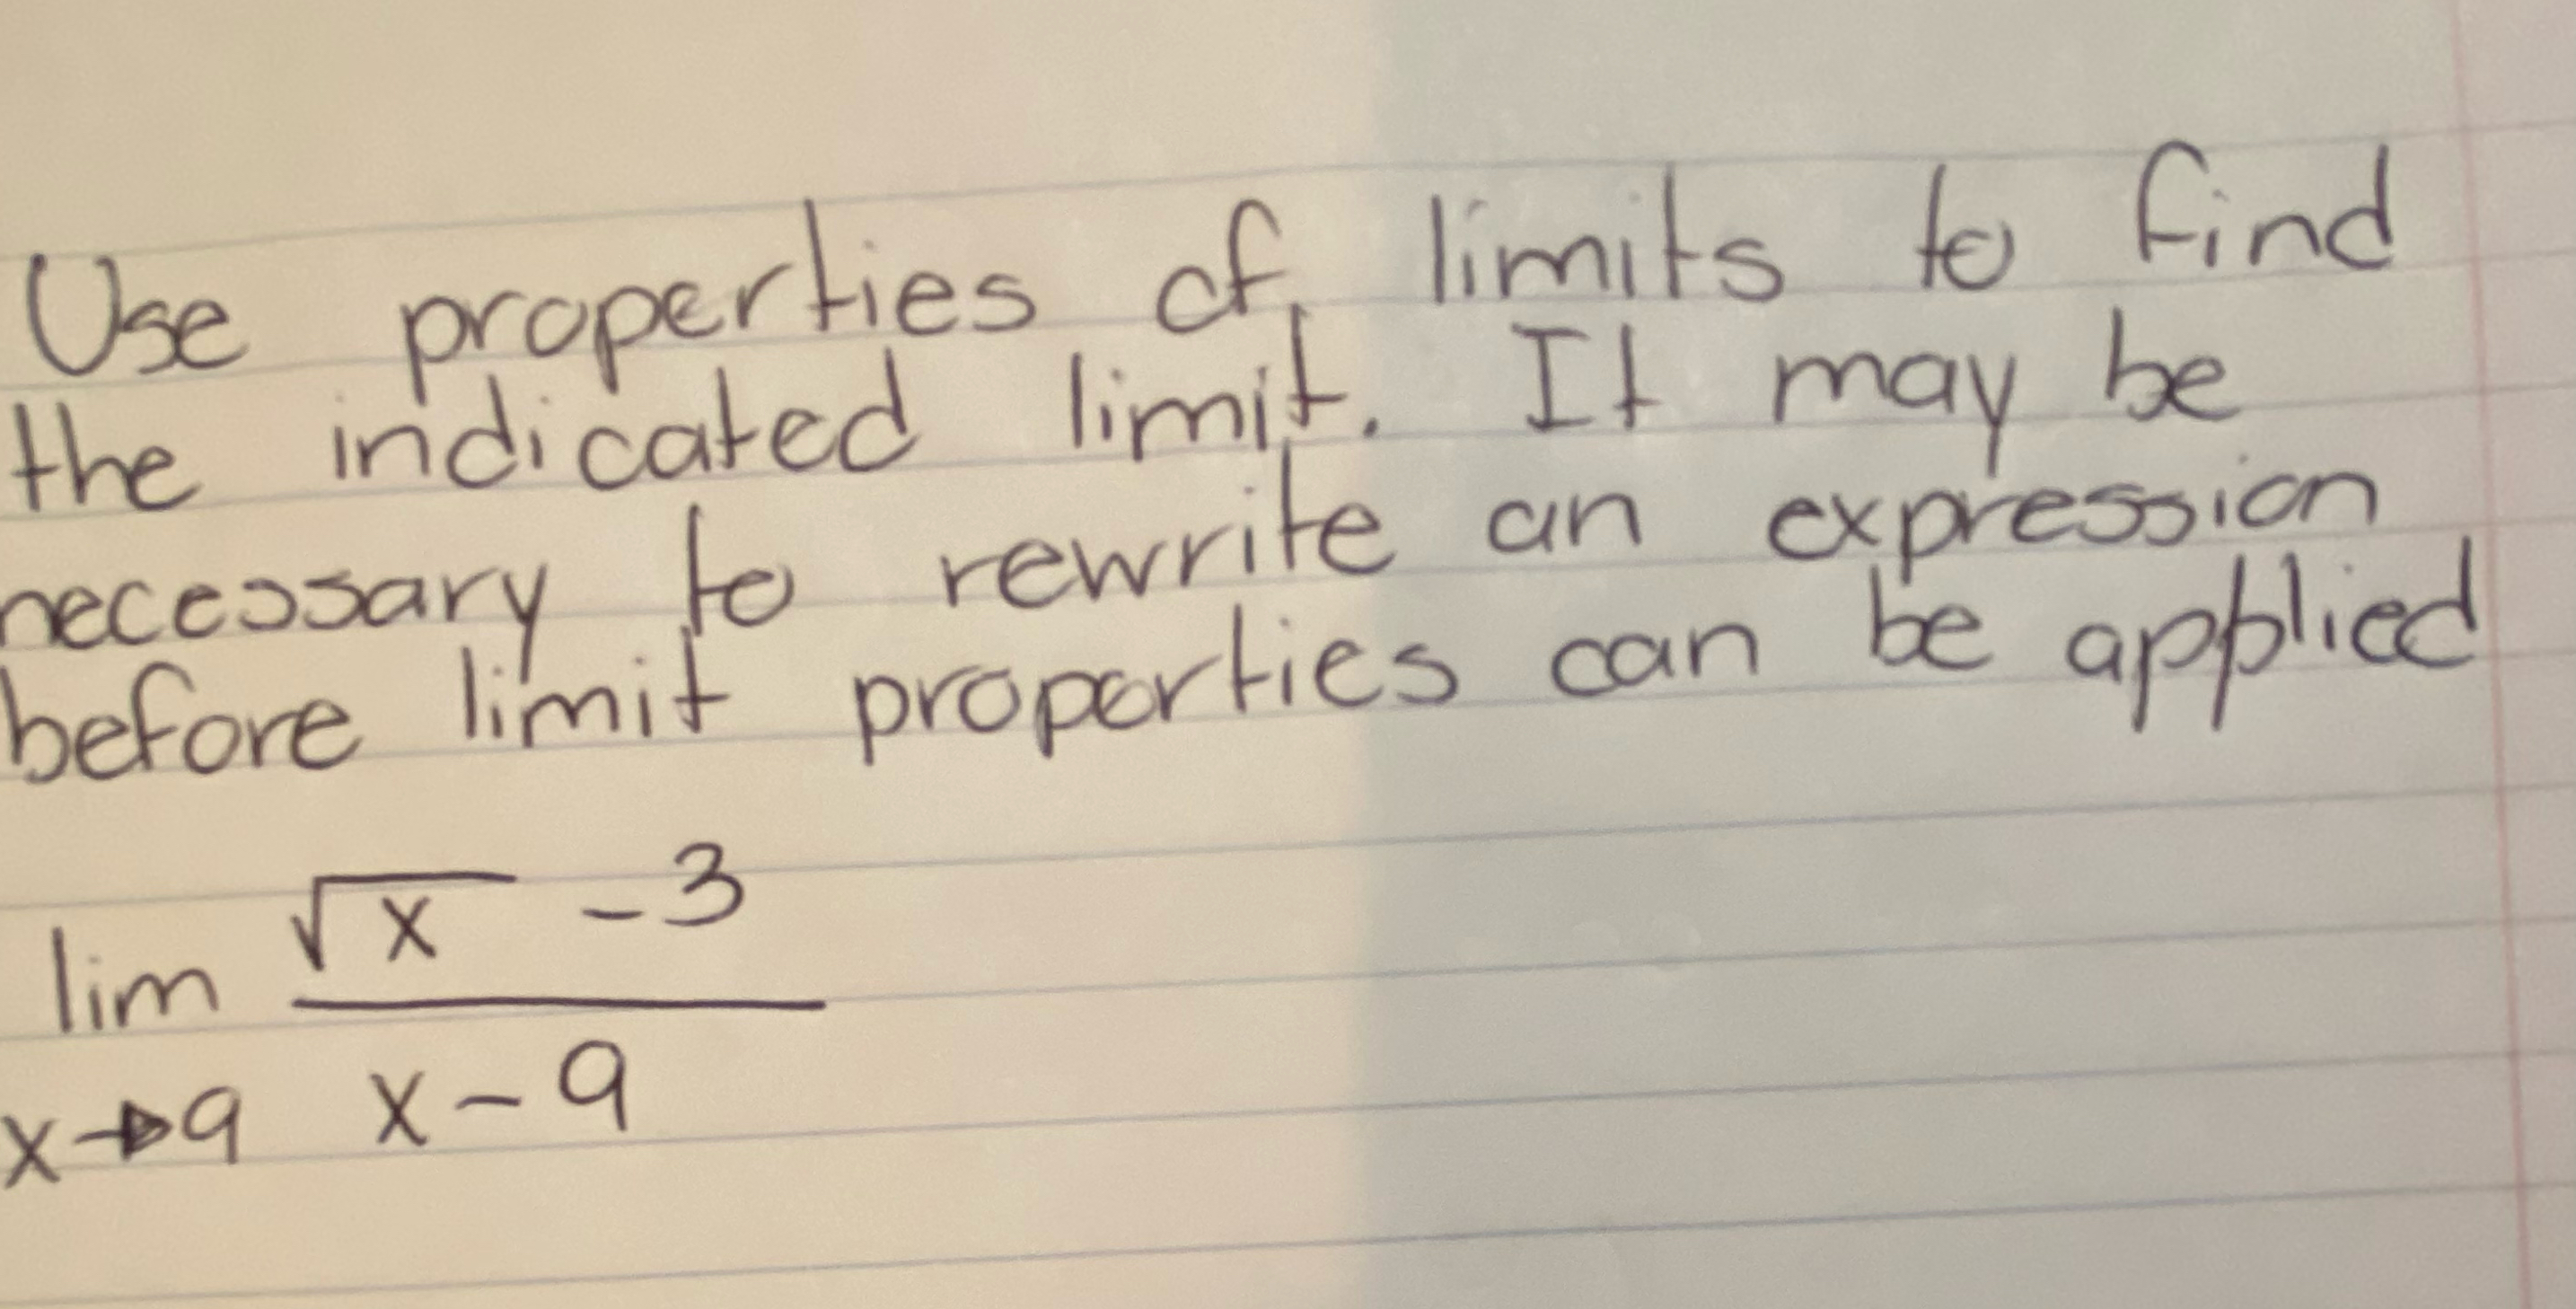 Use properties of limits to find
the indicated limit. It may be
necessary to rewrite an expression
before limit properties can be applied
lim √x - 3
x→9 x - 9